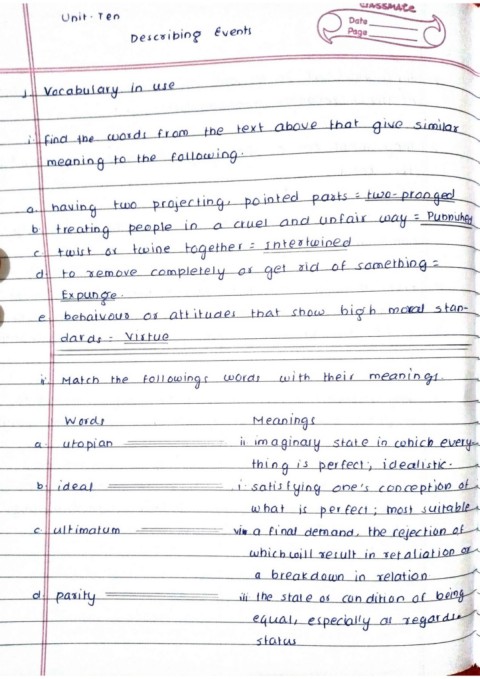 CLASSMATE
Unit-Ten
Date
Page
Describing Events
1. Vocabulary in use
i. find the words from the text above that give similar
meaning to the following.
a. having two projecting, pointed parts = two-pronged
b. treating people in a cruel and unfair way =
c. twist or twine together = Intertwined
d. to remove completely or get rid of something =
Expunge.
e. behaivour or attitudes that show high moral stan-
dards = Virtue
ii. Match the followings words with their meanings.
Words Meanings
a. utopian ii. imaginary state in which every-
thing is perfect; idealistic.
b. ideal i. satisfying one's conception of
what is perfect; most suitable
c. ultimatum a final demand, the rejection of
which will result in retaliation or
a breakdown in relation
d. parity iii. the state or condition of being
equal, especially as regards
status